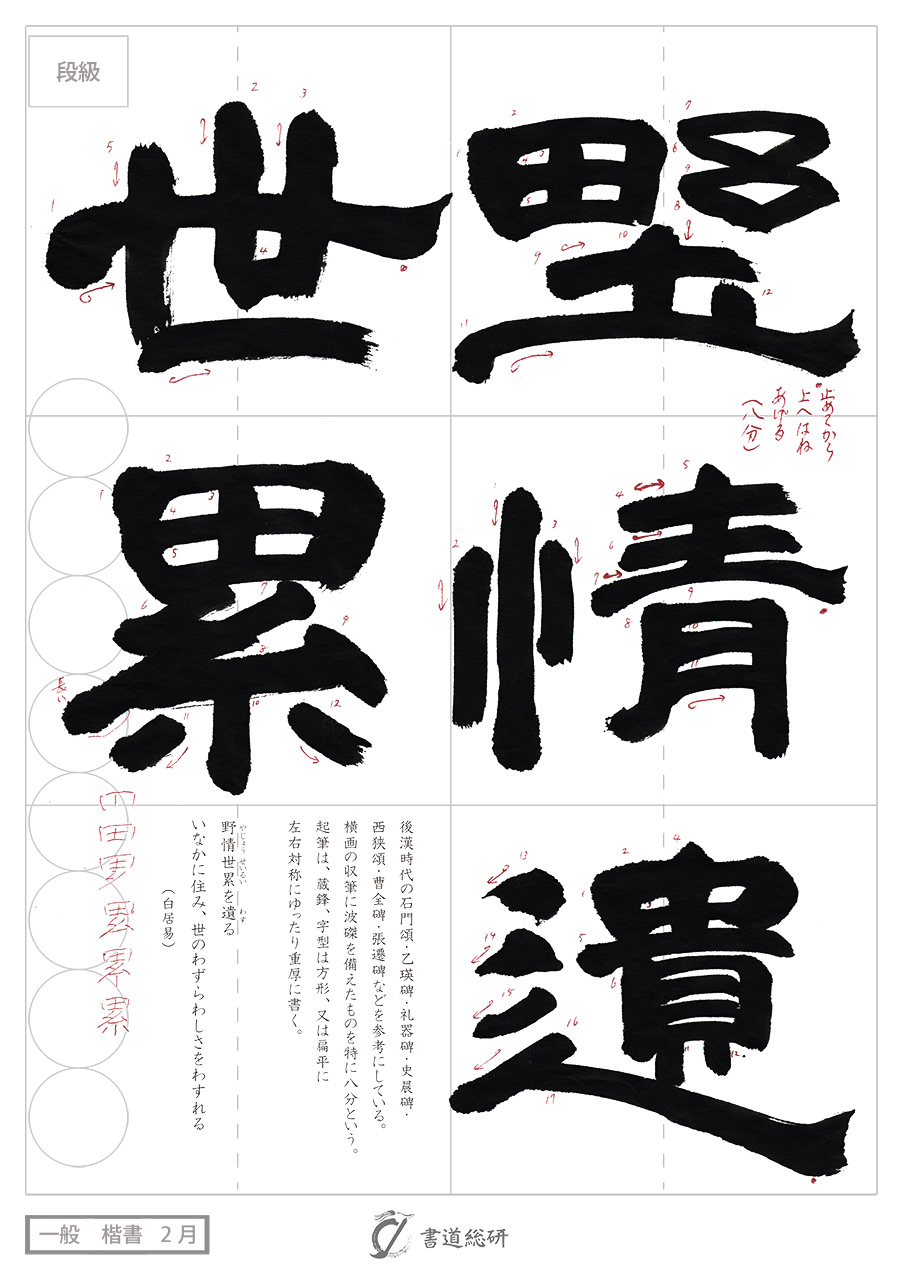 段級
野情遺
世累
止めてから
上へはね
あげる
（八分）
長い
後漢時代の石門頌・乙瑛碑・礼器碑・史晨碑・
西狭頌・曹全碑・張遷碑などを参考にしている。
横画の収筆に波磔を備えたものを特に八分という。
起筆は、蔵鋒、字型は方形、又は扁平に
左右対称にゆったり重厚に書く。
やじょう せいるい わす
野情世累を遺る
いなかに住み、世のわずらわしさをわすれる
（白居易）
一般 楷書 2月
書道総研